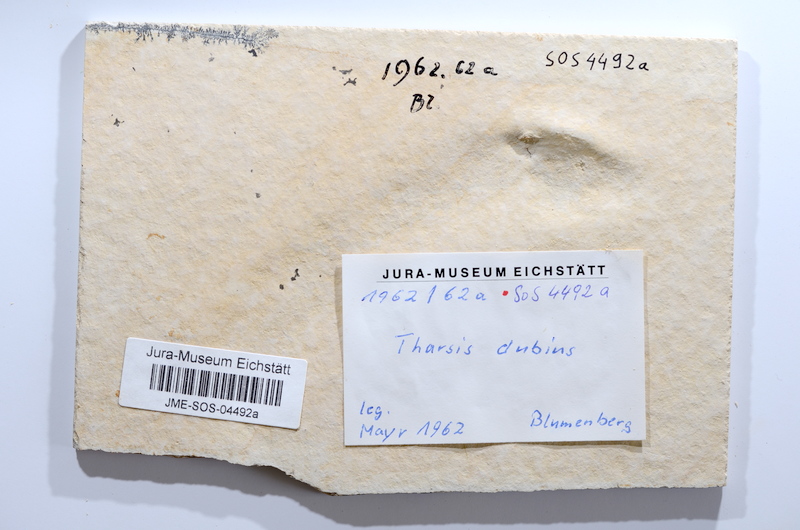 1962.62a
Bl
SOS4492a
JURA-MUSEUM EICHSTÄTT
1962/62a • SoS 4492a
Tharsis dubius
leg.
Mayr 1962
Blumenberg
Jura-Museum Eichstätt
JME-SOS-04492a